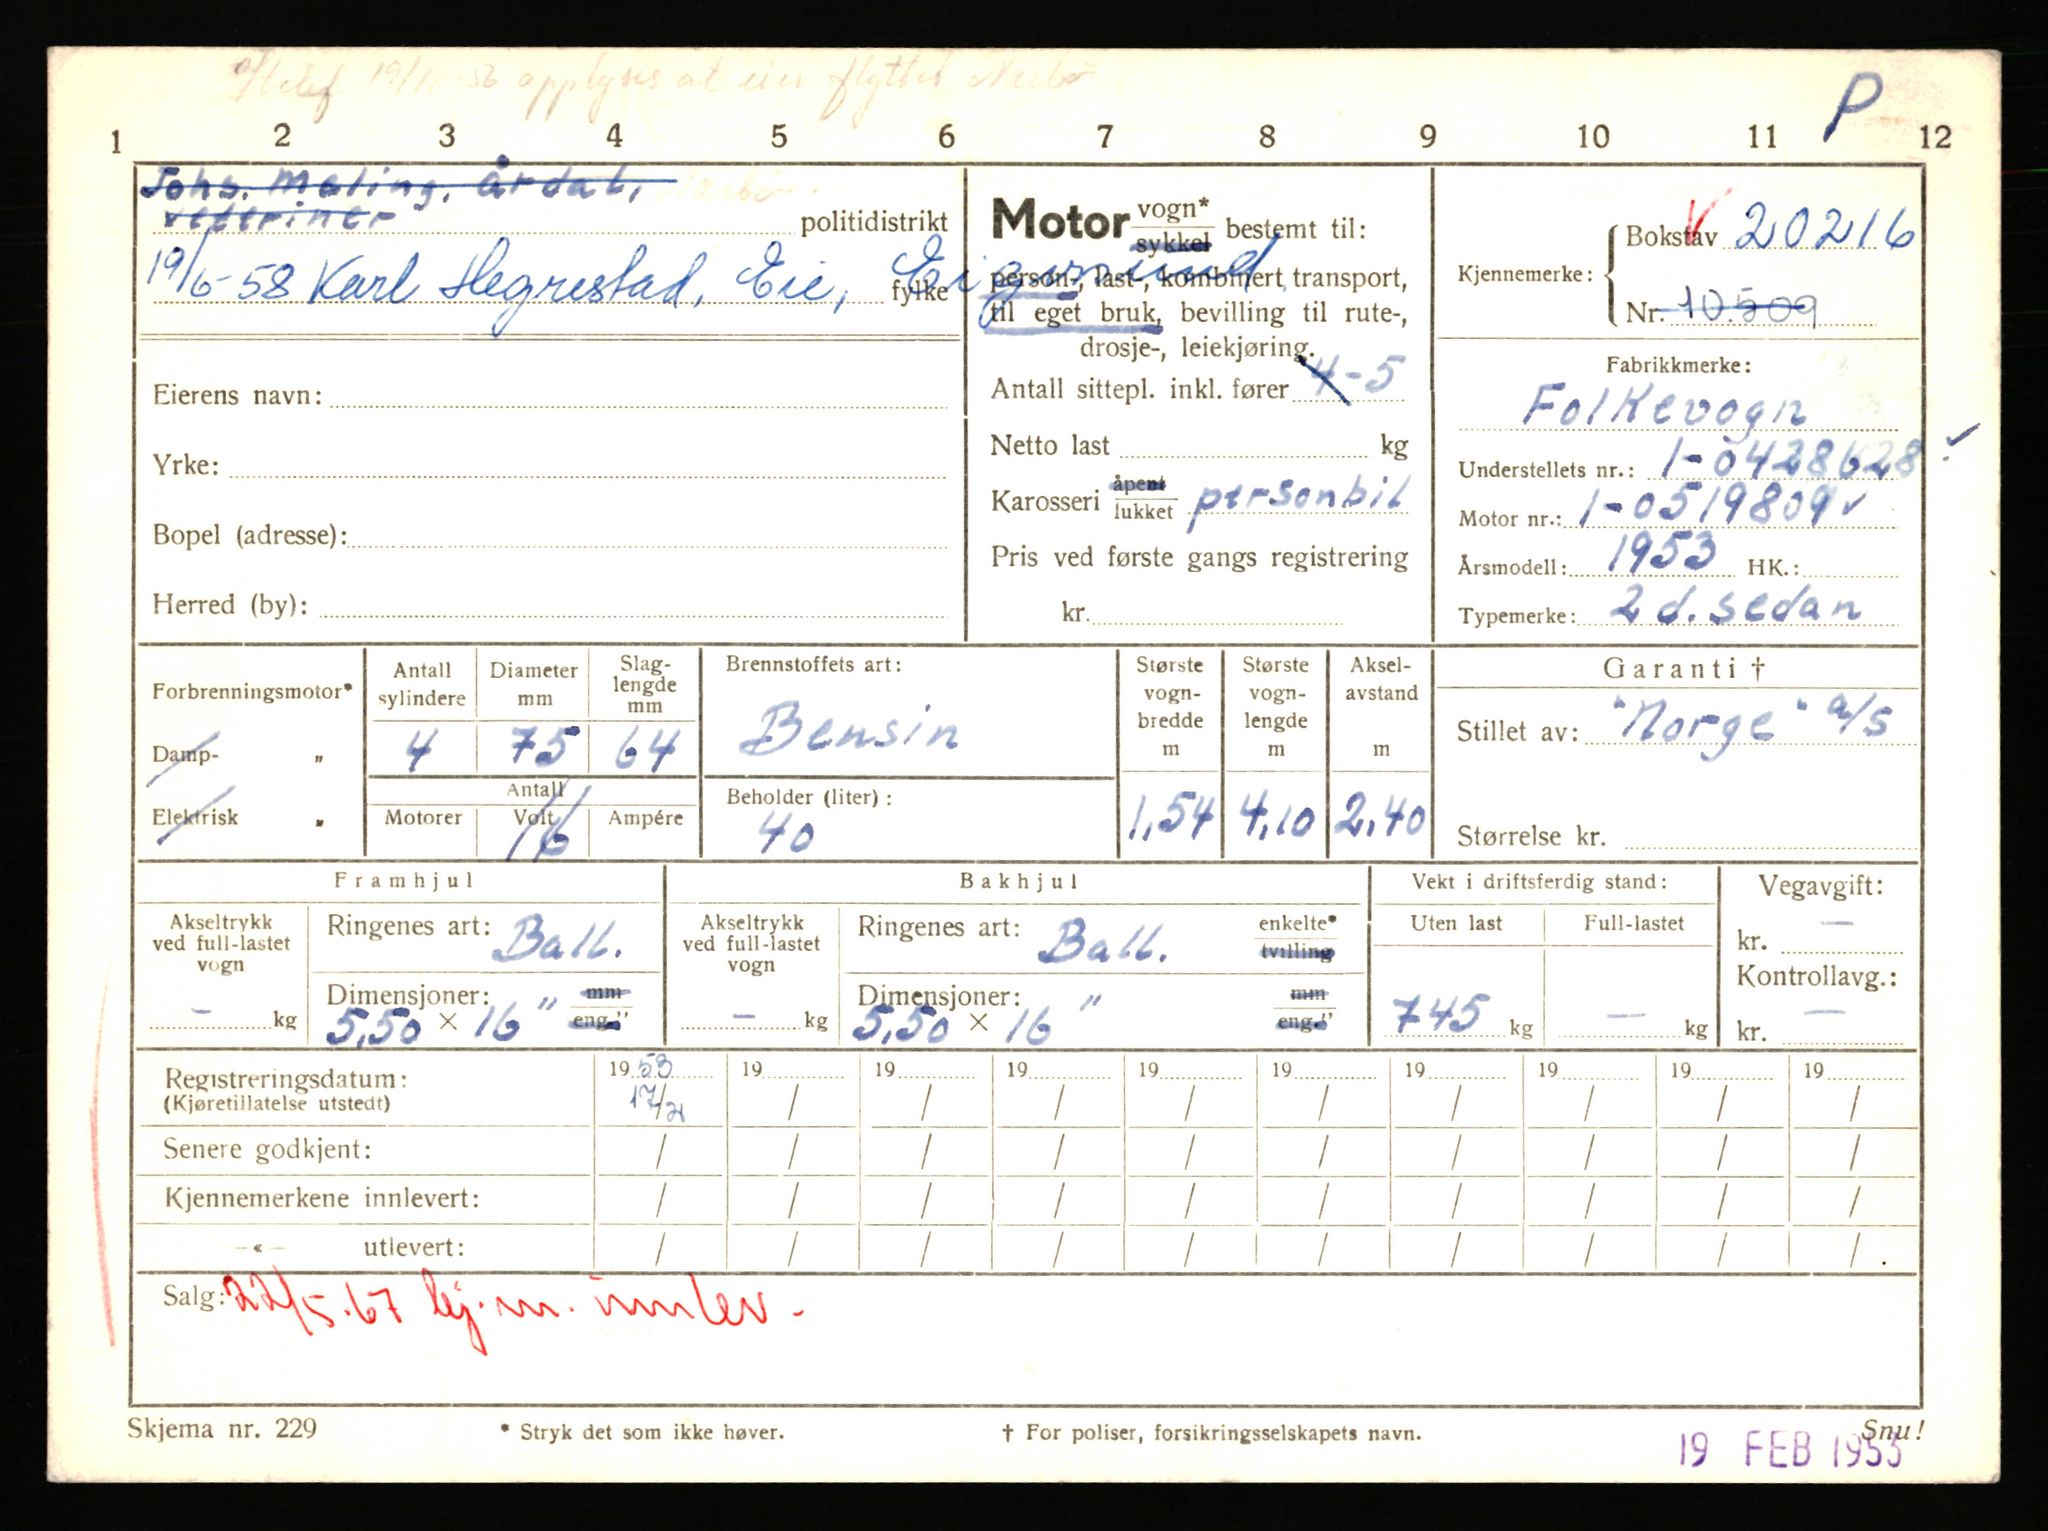 telef. 19/11-56 opplyses at eier flyttet Nærbø
P
1 2 3 4 5 6 7 8 9 10 11 12
Johs. Maling, Årdal, Nærbø.
veterinær politidistrikt
19/6-58 Karl Hegrestad, Eie, Eigersund
fylke
Eierens navn:
Yrke:
Bopel (adresse):
Herred (by):
Motor vogn* sykkel bestemt til:
person-, last-, kombinert, transport,
til eget bruk, bevilling til rute-,
drosje-, leiekjøring.
Antall sittepl. inkl. fører 4-5
Netto last kg
Karosseri åpent lukket personbil
Pris ved første gangs registrering
kr.
Kjennemerke: Bokstav V 20216
Nr. 10.509
Fabrikkmerke:
Folkevogn
Understellets nr.: 1-0428628
Motor nr.: 1-0519809
Årsmodell: 1953 HK.:
Typemerke: 2 d. sedan
Forbrenningsmotor*
Damp- „
Elektrisk „
Antall sylindere Diameter mm Slag-lengde mm
4 75 64
Antall
Motorer Volt Ampére
16
Brennstoffets art:
Bensin
Beholder (liter):
40
Største vogn-bredde m
1,54
Største vogn-lengde m
4,10
Aksel-avstand m
2,40
Garanti †
Stillet av: "Norge" a/s
Størrelse kr.
Framhjul
Akseltrykk ved full-lastet vogn
- kg
Ringenes art: Ball.
Dimensjoner: mm
5,50 × 16 " eng."
Bakhjul
Akseltrykk ved full-lastet vogn
- kg
Ringenes art: Ball. enkelte* tvilling
Dimensjoner: mm
5,50 × 16 " eng."
Vekt i driftsferdig stand:
Uten last Full-lastet
745 kg - kg
Vegavgift:
kr. -
Kontrollavg.:
kr. -
Registreringsdatum: 1953 19 19 19 19 19 19 19 19 19
(Kjøretillatelse utstedt) 17/2 / / / / / / / / /
Senere godkjent: / / / / / / / / / /
Kjennemerkene innlevert: / / / / / / / / / /
—«— utlevert: / / / / / / / / / /
Salg: 22/5.67 kj.m. innlev -
Skjema nr. 229 * Stryk det som ikke høver. † For poliser, forsikringsselskapets navn. Snu!
19 FEB 1953